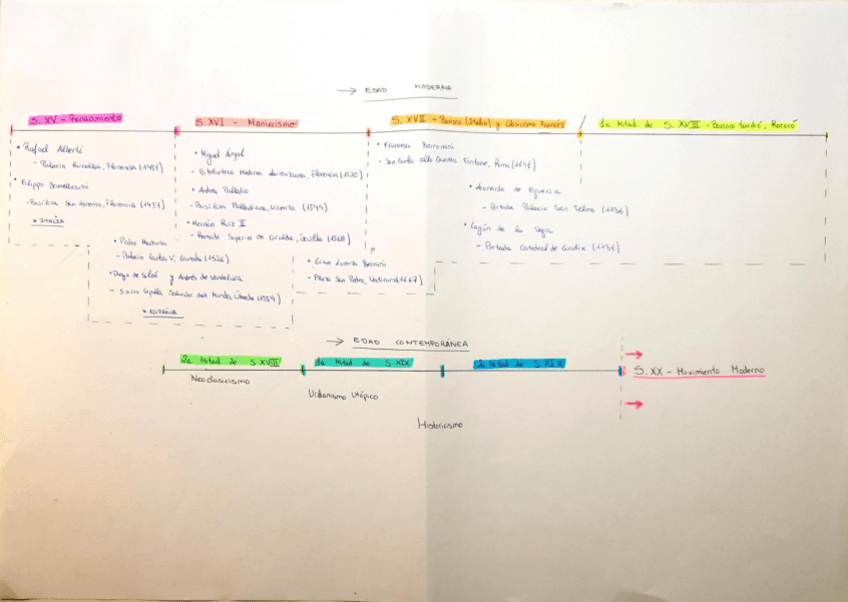 → EDAD MODERNA
S. XV - Renacimiento
S. XVI - Manierismo
S. XVII - Barroco (Italia) y Clasicismo Francés
1a Mitad de S. XVIII - Barroco tardío, Rococó
• Rafael Alberti
- Palacio Rucellai, Florencia (1451)
• Filippo Brunelleschi
- Basílica San Lorenzo, Florencia
• ITALIA
• Miguel Ángel
- Biblioteca Medicea Laurenziana, Florencia
• Andrea Palladio
- Basílica Palladiana, Vicenza (1549)
• Hernán Ruiz II
- Remate Superior de Giralda, Sevilla (1568)
• Pedro Machuca
- Palacio Carlos V, Granada (1526)
• Diego de Siloé y Andrés de Vandelvira
- Sacra Capilla Salvador del Mundo, Úbeda
• ESPAÑA
• Francesco Borromini
- San Carlo alle Quattro Fontane, Roma
• Gian Lorenzo Bernini
- Plaza San Pedro, Vaticano (1667)
• Leonardo de Figueroa
- Portada Palacio San Telmo
• Gayón de la Vega
- Portada Catedral de Guadix
→ EDAD CONTEMPORÁNEA
2a Mitad de S. XVIII
1a Mitad de S. XIX
2a Mitad de S. XIX
S. XX - Movimiento Moderno
Neoclasicismo
Urbanismo Utópico
Historicismo